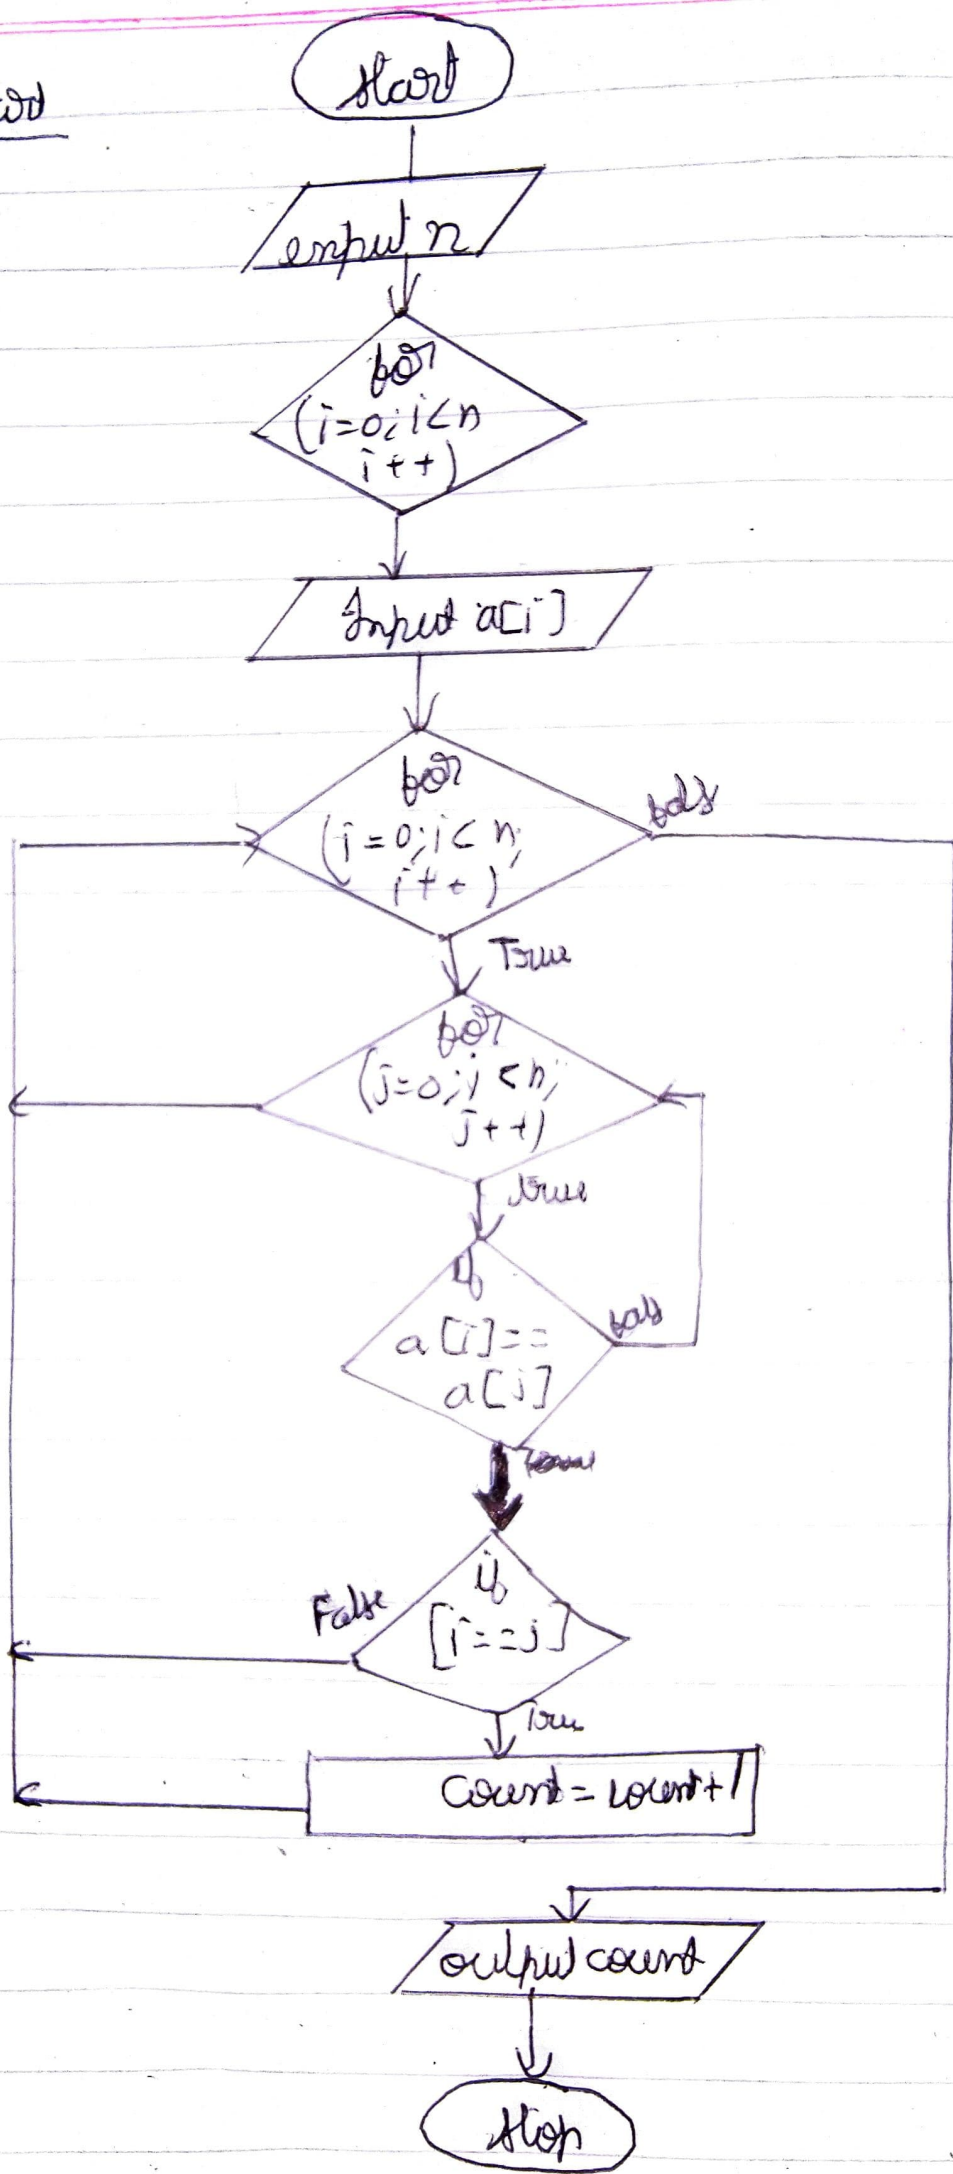 Start
enput n
for
(i=0; i<n
i++)
Input a[i]
for
(i=0; i<n;
i++)
fals
True
for
(j=0; j<n;
j++)
true
if
a[i]==
a[j]
fals
True
if
[i==j]
False
True
Count=count+1
output count
Stop